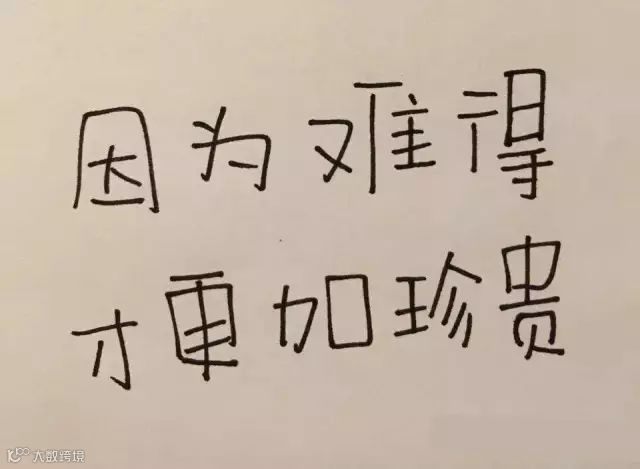 因为难得
才更加珍贵
大数跨境